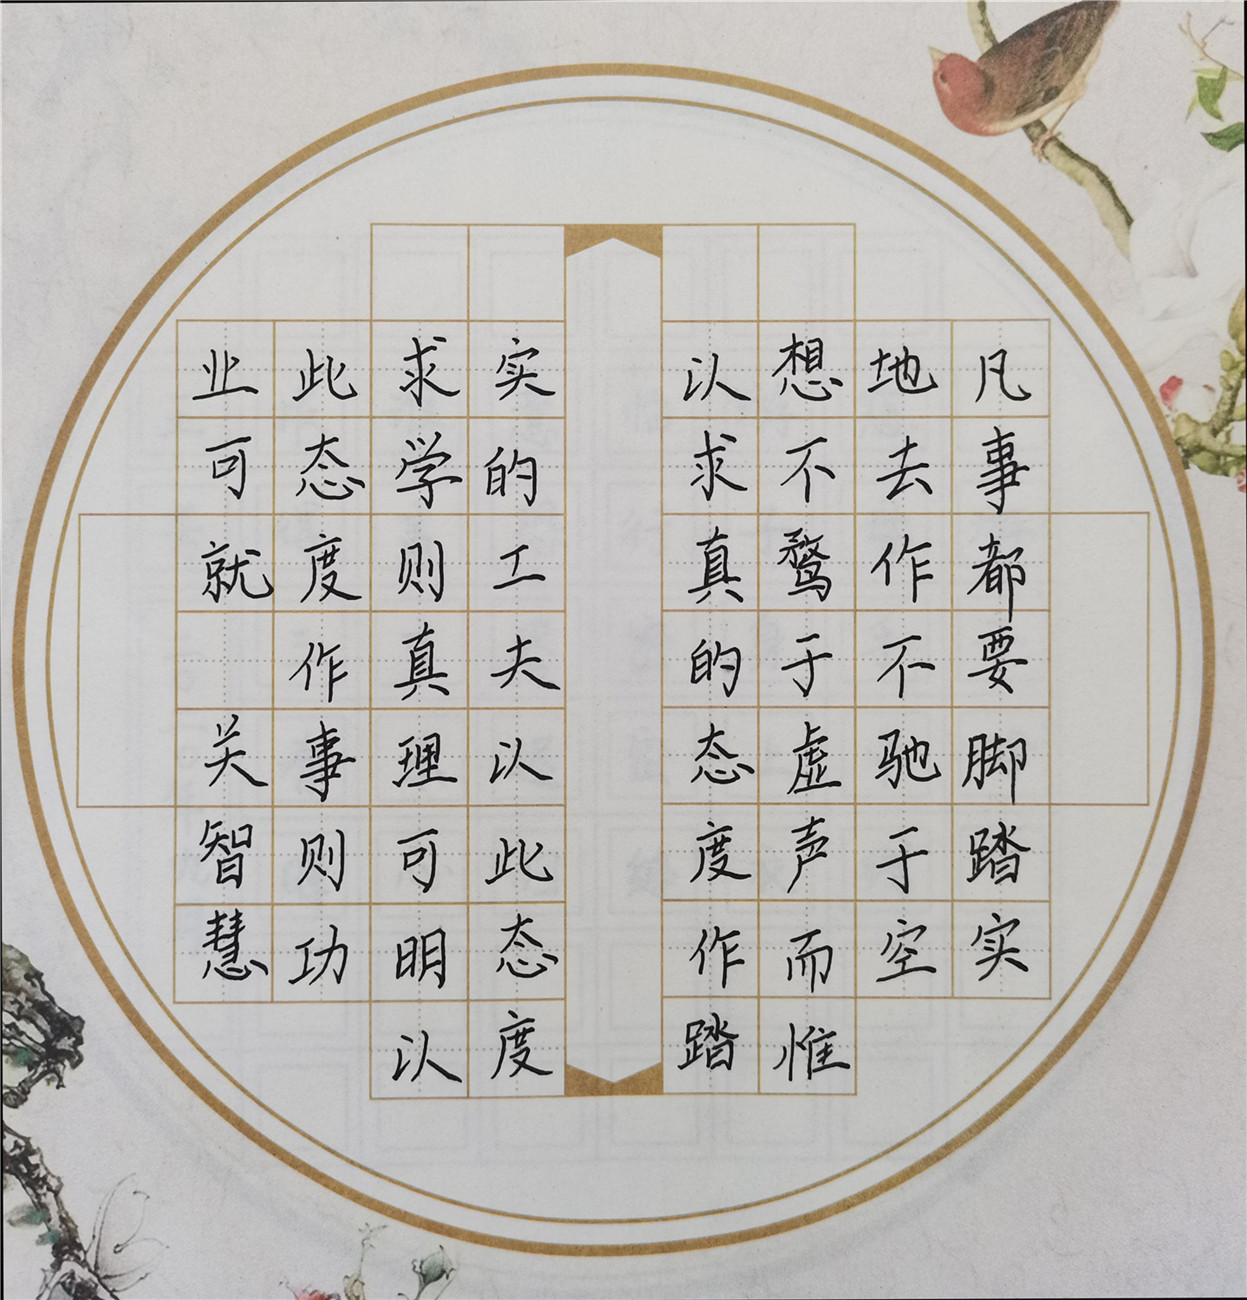 凡事都要脚踏实
地去作不驰于空
想不鹜于虚声而惟
以求真的态度作踏
实的工夫以此态度
求学则真理可明以
此态度作事则功
业可就
关智慧